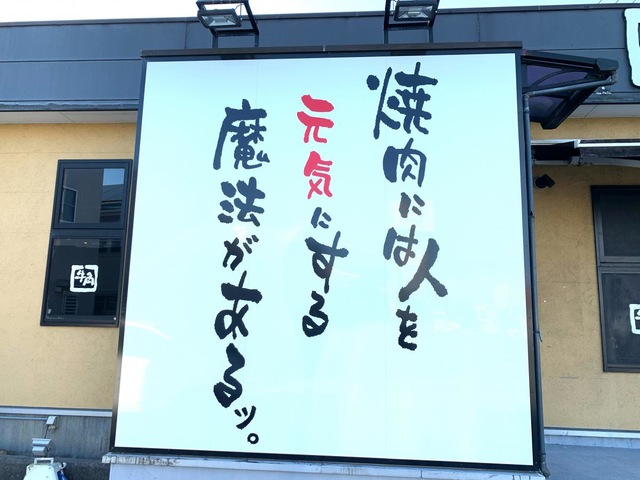 焼肉には人を
元気にする
魔法があるッ。
牛角